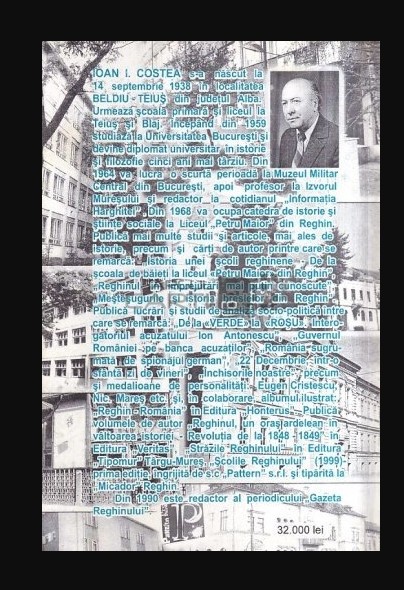 IOAN I. COSTEA s-a născut la
14 septembrie 1938 în localitatea
BELDIU - TEIUŞ din judeţul Alba.
Urmează şcoala primară şi liceul la
Teiuş şi Blaj. Începând din 1959
studiază la Universitatea Bucureşti şi
devine diplomat universitar în istorie
şi filozofie cinci ani mai târziu. Din
1964 va lucra o scurtă perioadă la Muzeul Militar
Central din Bucureşti, apoi profesor la Izvorul
Mureşului şi redactor la cotidianul „Informaţia
Harghitei”. Din 1968 va ocupa catedra de istorie şi
ştiinţe sociale la Liceul „Petru Maior” din Reghin.
Publică mai multe studii şi articole, mai ales de
istorie, precum şi cărţi de autor printre care se
remarcă: „Istoria unei şcoli reghinene - De la
şcoala de băieţi la liceul «Petru Maior» din Reghin”,
„Reghinul şi împrejurimi mai puţin cunoscute”,
„Meşteşugurile şi istoria breslelor din Reghin”.
Publică lucrări şi studii de analiză socio-politică între
care se remarcă: „De la «VERDE» la «ROŞU». Intero-
gatoriul acuzatului Ion Antonescu”, „Guvernul
României pe banca acuzaţilor”, „România sugru-
mată de spionajul german”, „22 Decembrie, într-o
sfântă zi de vineri”, „Închisorile noastre” precum
şi medalioane de personalităţi: Eugen Cristescu,
Nic. Mareş etc. şi, în colaborare, albumul ilustrat:
„Reghin - România” în Editura „Honterus”. Publică
volumele de autor „Reghinul, un oraş ardelean în
vâltoarea istoriei - Revoluţia de la 1848 - 1849” în
Editura „Veritas”, „Străzile Reghinului” în Editura
„Tipomur” Târgu-Mureş, „Şcolile Reghinului” (1999)
prima ediţie îngrijită de s.c. „Pattern” s.r.l. şi tipărită la
„Micador” Reghin.
Din 1990 este redactor al periodicului „Gazeta
Reghinului”.
P
32.000 lei